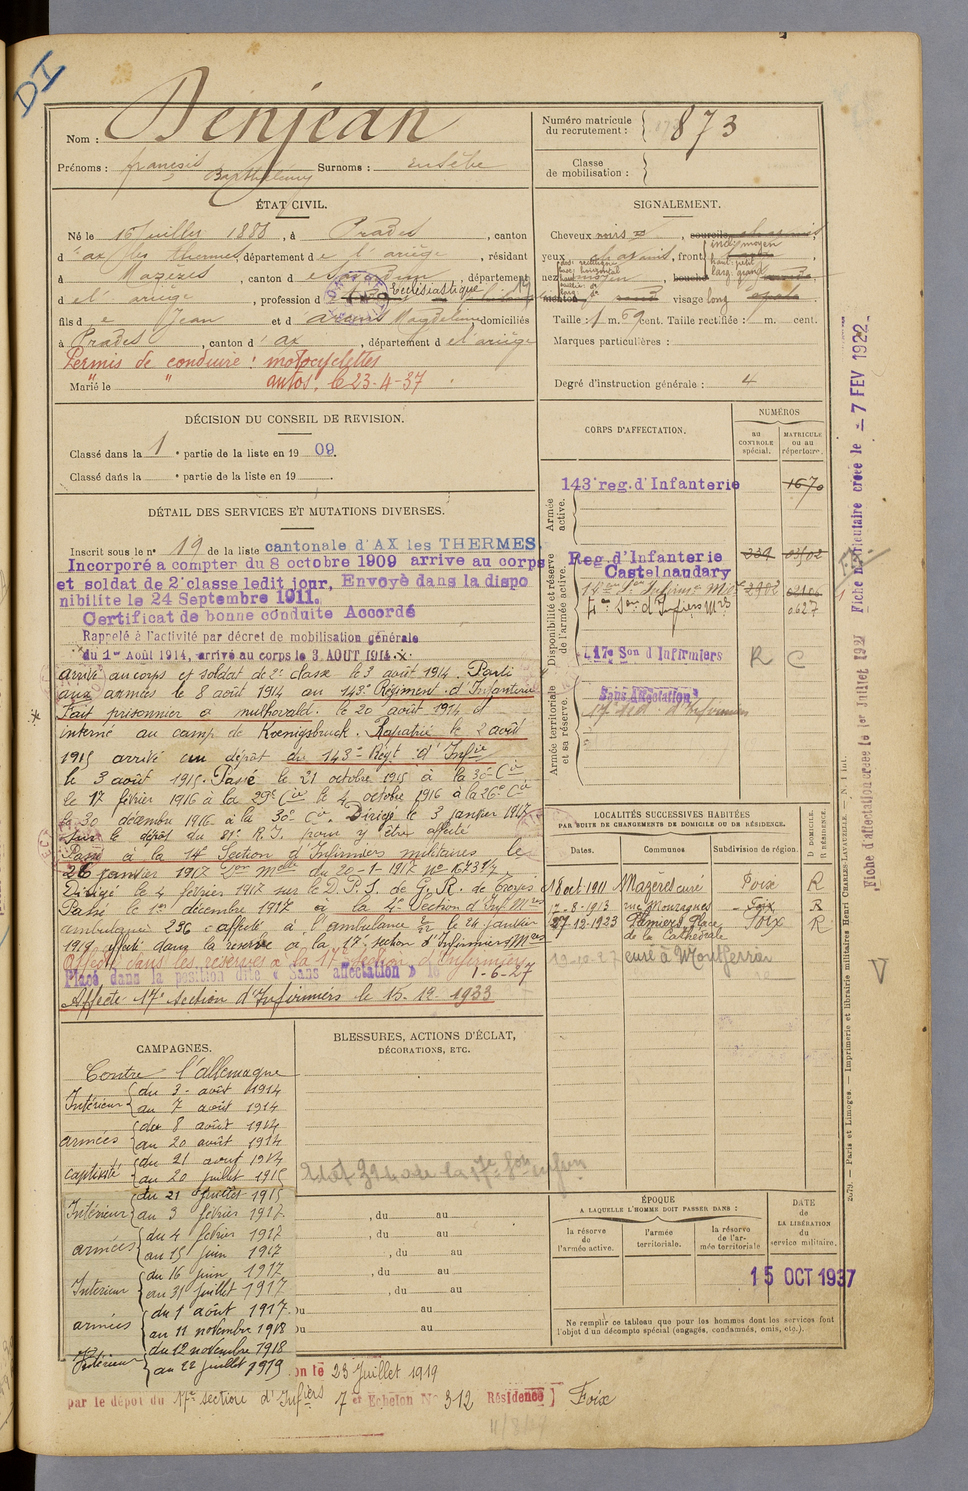 DI
Nom : Denjean
Prénoms : françois Barthélémy Surnoms : eusèbe
Numéro matricule
du recrutement : 873
Classe
de mobilisation :
ÉTAT CIVIL.
Né le 16 Juillet 1888, à Prades, canton
d'ax les thermes, département de l'ariège, résidant
à Mazères, canton de Saverdun, département
d el ariège, profession d Ecclésiastique
fils de Jean et d Magdeleine, domiciliés
à Prades, canton d'ax, département d el'ariège
Permis de conduire : motocyclettes
Marié le " autos, le 23-4-37
SIGNALEMENT.
Cheveux noirs, sourcils
yeux chatains, front incl. moyen
haut. petit
larg. grand
nez moyen, bouche
menton, visage long
Taille : 1 m. 69 cent. Taille rectifiée : m. cent.
Marques particulières :
Degré d'instruction générale : 4
DÉCISION DU CONSEIL DE REVISION.
Classé dans la 1e partie de la liste en 1909.
Classé dans la e partie de la liste en 19
DÉTAIL DES SERVICES ET MUTATIONS DIVERSES.
Inscrit sous le n° 19 de la liste cantonale d'AX les THERMES.
Incorporé a compter du 8 octobre 1909 arrive au corps
et soldat de 2e classe ledit jour, Envoyé dans la dispo
nibilite le 24 Septembre 1911.
Certificat de bonne conduite Accordé
Rappelé à l'activité par décret de mobilisation générale
du 1er Août 1914, arrivé au corps le 3 AOUT 1914.
arrivé au corps et soldat de 2e classe le 3 août 1914. Parti
aux armées le 8 août 1914 au 143e Régiment d'Infanterie
Fait prisonnier a mulhovald le 20 août 1914 et
interné au camp de Kœnigsbruck. Rapatrié le 2 août
1915 arrivé au dépôt du 143e Régt d'Infie
le 3 août 1915. Passé le 21 octobre 1915 à la 30e Cie
le 17 février 1916 à la 29e Cie le 4 octobre 1916 à la 26e Cie
le 30 décembre 1916 à la 30e Cie. Dirigé le 3 janvier 1917
sur le dépôt du 81e R.I. pour y être affecté
Passé à la 14e Section d'Infirmiers militaires le
26 janvier 1917 du 20-1-1917 N° 16731/4
Dirigé le 4 février 1917 sur le D.P.S. de G.R. de Troyes
Passé le 1er décembre 1917 à la 4e Section d'Inf Mres
ambulance 236 affecté à l'ambulance 2/22 le 24 janvier
1919 affecté dans la réserve à la 17e section d'Infirmiers Mres
Affecté dans les réserves à la 17e section d'Infirmiers
Placé dans la position dite « Sans affectation » le 1-6-27
Affecté 17e Section d'Infirmiers le 15.12.1933
CORPS D'AFFECTATION.
NUMÉROS
au
CONTROLE
spécial.
MATRICULE
ou au
répertoire.
Armée
active.
143e reg. d'Infanterie 1670
Disponibilité et réserve
de l'armée active.
Reg. d'Infanterie
Castelnaudary
4e Son d'Infiers Mres
17e Son d'Infirmiers R C
Armée territoriale
et sa réserve.
Sans Affectation
17e Sect. d'Infirmiers
LOCALITÉS SUCCESSIVES HABITÉES
PAR SUITE DE CHANGEMENTS DE DOMICILE OU DE RÉSIDENCE.
Dates. Communes Subdivision de région. D DOMICILE. R RÉSIDENCE.
18 oct 1911 Mazères curé Foix R
1-8-1913 Foix R
27-12-1923 Pamiers Place de la Cathédrale Foix R
19-10-27 curé à Montferrier
CAMPAGNES.
Contre l'allemagne
Intérieur du 3 août 1914
au 7 août 1914
armées du 8 août 1914
au 20 août 1914
captivité du 21 août 1914
au 20 juillet 1915
Intérieur du 21 Juillet 1915
au 3 février 1917
armées du 4 février 1917
au 15 juin 1917
Intérieur du 16 juin 1917
au 31 juillet 1917
armées du 1 août 1917
au 11 novembre 1918
Intérieur du 12 novembre 1918
au 22 juillet 1919
BLESSURES, ACTIONS D'ÉCLAT,
DÉCORATIONS, ETC.
, du au
, du au
, du au
, du au
, du au
Du au
Du au
ÉPOQUE
A LAQUELLE L'HOMME DOIT PASSER DANS :
la réserve
de
l'armée active.
l'armée
territoriale.
la réserve
de l'ar-
mée territoriale
DATE
de
LA LIBÉRATION
du
service militaire.
15 OCT 1937
Ne remplir ce tableau que pour les hommes dont les services font
l'objet d'un décompte spécial (engagés, condamnés, omis, etc.).
on le 23 Juillet 1919
par le dépôt du 17e section d'Infiers 7er Echelon N° 312 Résidence Foix
2679. — Paris et Limoges. — Imprimerie et librairie militaires Henri CHARLES-LAVAUZELLE. — N. 1 int.
Fiche d'affectation créée le 1er Juillet 1927
Fiche matriculaire créée le - 7 FEV 1922
V